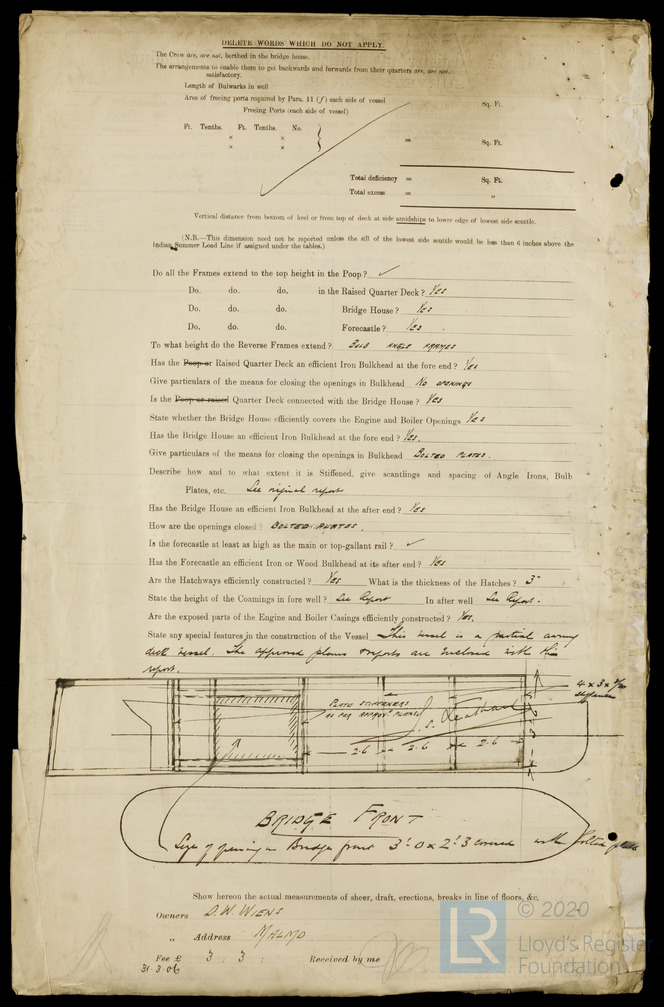 DELETE WORDS WHICH DO NOT APPLY.
The Crew are, are not, berthed in the bridge house.
The arrangements to enable them to get backwards and forwards from their quarters are, are not, satisfactory.
Length of Bulwarks in well
Area of freeing ports required by Para. 11 (f) each side of vessel Sq. Ft.
Freeing Ports (each side of vessel)
Ft. Tenths. Ft. Tenths. No.
× × = Sq. Ft.
× ×
Total deficiency = Sq. Ft.
Total excess = "
Vertical distance from bottom of keel or from top of deck at side amidships to lower edge of lowest side scuttle.
(N.B.—This dimension need not be reported unless the sill of the lowest side scuttle would be less than 6 inches above the
Indian Summer Load Line if assigned under the tables.)
Do all the Frames extend to the top height in the Poop? ✓
Do. do. do. in the Raised Quarter Deck? Yes
Do. do. do. Bridge House? Yes
Do. do. do. Forecastle? Yes.
To what height do the Reverse Frames extend? BULB ANGLE FRAMES
Has the Poop or Raised Quarter Deck an efficient Iron Bulkhead at the fore end? Yes
Give particulars of the means for closing the openings in Bulkhead No openings
Is the Poop or raised Quarter Deck connected with the Bridge House? Yes
State whether the Bridge House efficiently covers the Engine and Boiler Openings Yes
Has the Bridge House an efficient Iron Bulkhead at the fore end? Yes.
Give particulars of the means for closing the openings in Bulkhead BOLTED PLATES.
Describe how and to what extent it is Stiffened, give scantlings and spacing of Angle Irons, Bulb
Plates, etc. See original report
Has the Bridge House an efficient Iron Bulkhead at the after end? Yes
How are the openings closed? BOLTED PLATES.
Is the forecastle at least as high as the main or top-gallant rail? ✓
Has the Forecastle an efficient Iron or Wood Bulkhead at its after end? Yes
Are the Hatchways efficiently constructed? Yes What is the thickness of the Hatches? 3"
State the height of the Coamings in fore well? See Report In after well See Report.
Are the exposed parts of the Engine and Boiler Casings efficiently constructed? Yes.
State any special features in the construction of the Vessel This vessel is a partial awning
deck vessel. The approved plans & reports are enclosed with this
report.
4 x 3 x
stiffeners
PLATE STIFFENERS
AS PER APPROVD PLANS
2.6 2.6 2.6
BRIDGE FRONT
Size of opening in Bridge front 3'.0 x 2'.3 covered with bolted plate
Show hereon the actual measurements of sheer, draft, erections, breaks in line of floors, &c.
Owners D. W. WIENS
" Address MALMO
Fee £ 3 : 3 : Received by me
31.3.06
LR
© 2020
Lloyd's Register
Foundation